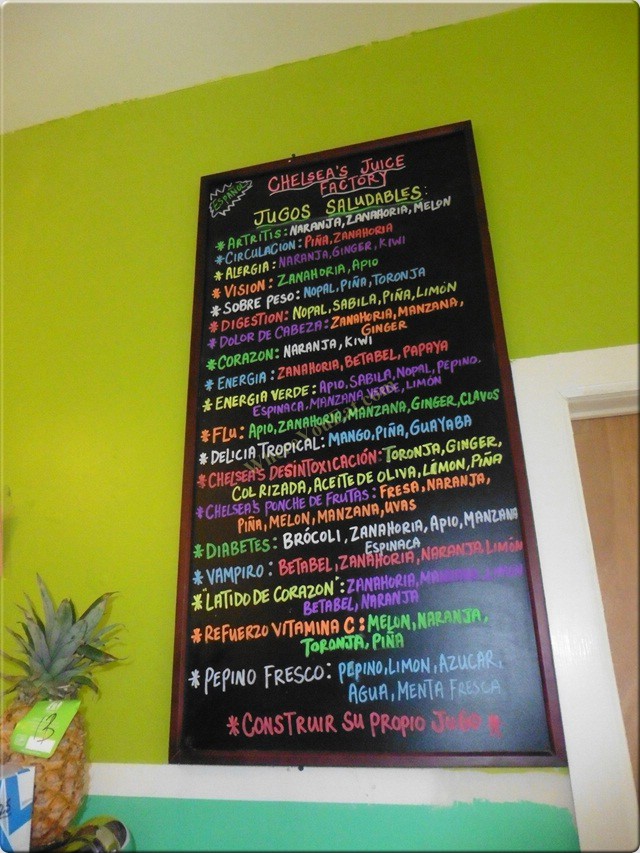 ESPAÑOL
CHELSEA'S JUICE
FACTORY
JUGOS SALUDABLES:
* ARTRITIS: NARANJA, ZANAHORIA, MELON
* CIRCULACION: PIÑA, ZANAHORIA
* ALERGIA: NARANJA, GINGER, KIWI
* VISION: ZANAHORIA, APIO
* SOBRE PESO: NOPAL, PIÑA, TORONJA
* DIGESTION: NOPAL, SABILA, PIÑA, LIMÓN
* DOLOR DE CABEZA: ZANAHORIA, MANZANA,
GINGER
* CORAZON: NARANJA, KIWI
* ENERGIA: ZANAHORIA, BETABEL, PAPAYA
* ENERGIA VERDE: APIO, SABILA, NOPAL, PEPINO.
ESPINACA, MANZANA VERDE, LIMÓN
* FLU: APIO, ZANAHORIA, MANZANA, GINGER, CLAVOS
* DELICIA TROPICAL: MANGO, PIÑA, GUAYABA
* CHELSEA'S DESINTOXICACIÓN: TORONJA, GINGER,
COL RIZADA, ACEITE DE OLIVA, LÉMON, PIÑA
* CHELSEA'S PONCHE DE FRUTAS: FRESA, NARANJA,
PIÑA, MELON, MANZANA, UVAS
* DIABETES: BRÓCOLI, ZANAHORIA, APIO, MANZANA
ESPINACA
* VAMPIRO: BETABEL, ZANAHORIA, NARANJA, LIMÓN
* "LATIDO DE CORAZON": ZANAHORIA, MANZANA, LIMON
BETABEL, NARANJA
* REFUERZO VITAMINA C: MELON, NARANJA,
TORONJA, PIÑA
* PEPINO FRESCO: PEPINO, LIMON, AZUCAR,
AGUA, MENTA FRESCA
* CONSTRUIR SU PROPIO JUGO *